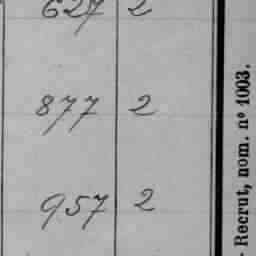 627 2
877 2
957 2
- Recrut, nom. nº 1003.